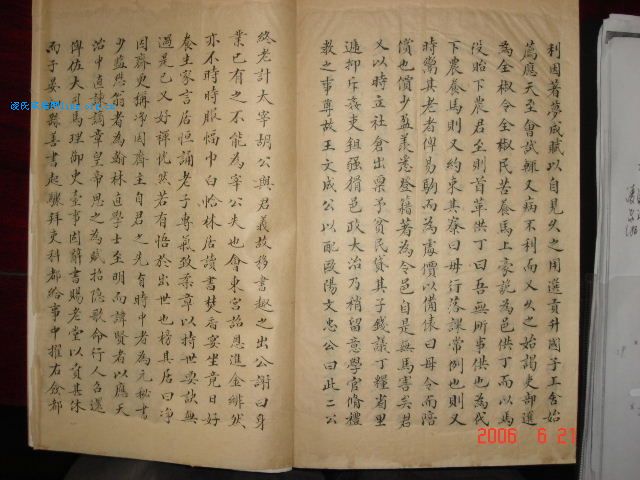 利因著夢咸賦以自見久之用選貢升國子工舍始
薦應天呈會試輒又病不利而又久之始謁吏部選
為全椒令全椒民苦養馬上豪詭為邑供丁而以馬
役貽下農君至則首革供丁曰吾無所事供也為代
下農養馬則又約束其寮曰毋行落課常例也則又
時鬻其老者俾易駒而為處價以備俵曰毋令而陪
償也償少盈美悉登籍著為令邑自是無馬害矣君
又以時立社倉出票予貧民貸其子錢議丁糧省里
遞抑斥喪吏鉏強猾邑政大治乃稍留意學官脩禮
教之事尊故王文成公以配歐陽文忠公曰此二公
終老計大宰胡公與君義教移書趣之出公謝曰身
業已有之不能為宰公失也會東宮詔恩進金緋然
亦不時時服幅巾白恰林居讀書焚香宴坐竟日好
養生家言居恒誦老子專氣致柔章以持世要訣無
過是已又好禪恍然若有悟於出世也榜其居曰淨
因齋更稱淨因齋主自君之先有時中者為元秘書
少監與翁者為翰林直學士至明而諱賢者以應天
治中直諫謫章皇帝思之為賦招隱歌命行人召還
俾伍大司馬理御史臺事因辭書賜老堂以資其休
而子晏如縣善書起驟拜吏科都給事中擢右僉都
2006 6 21